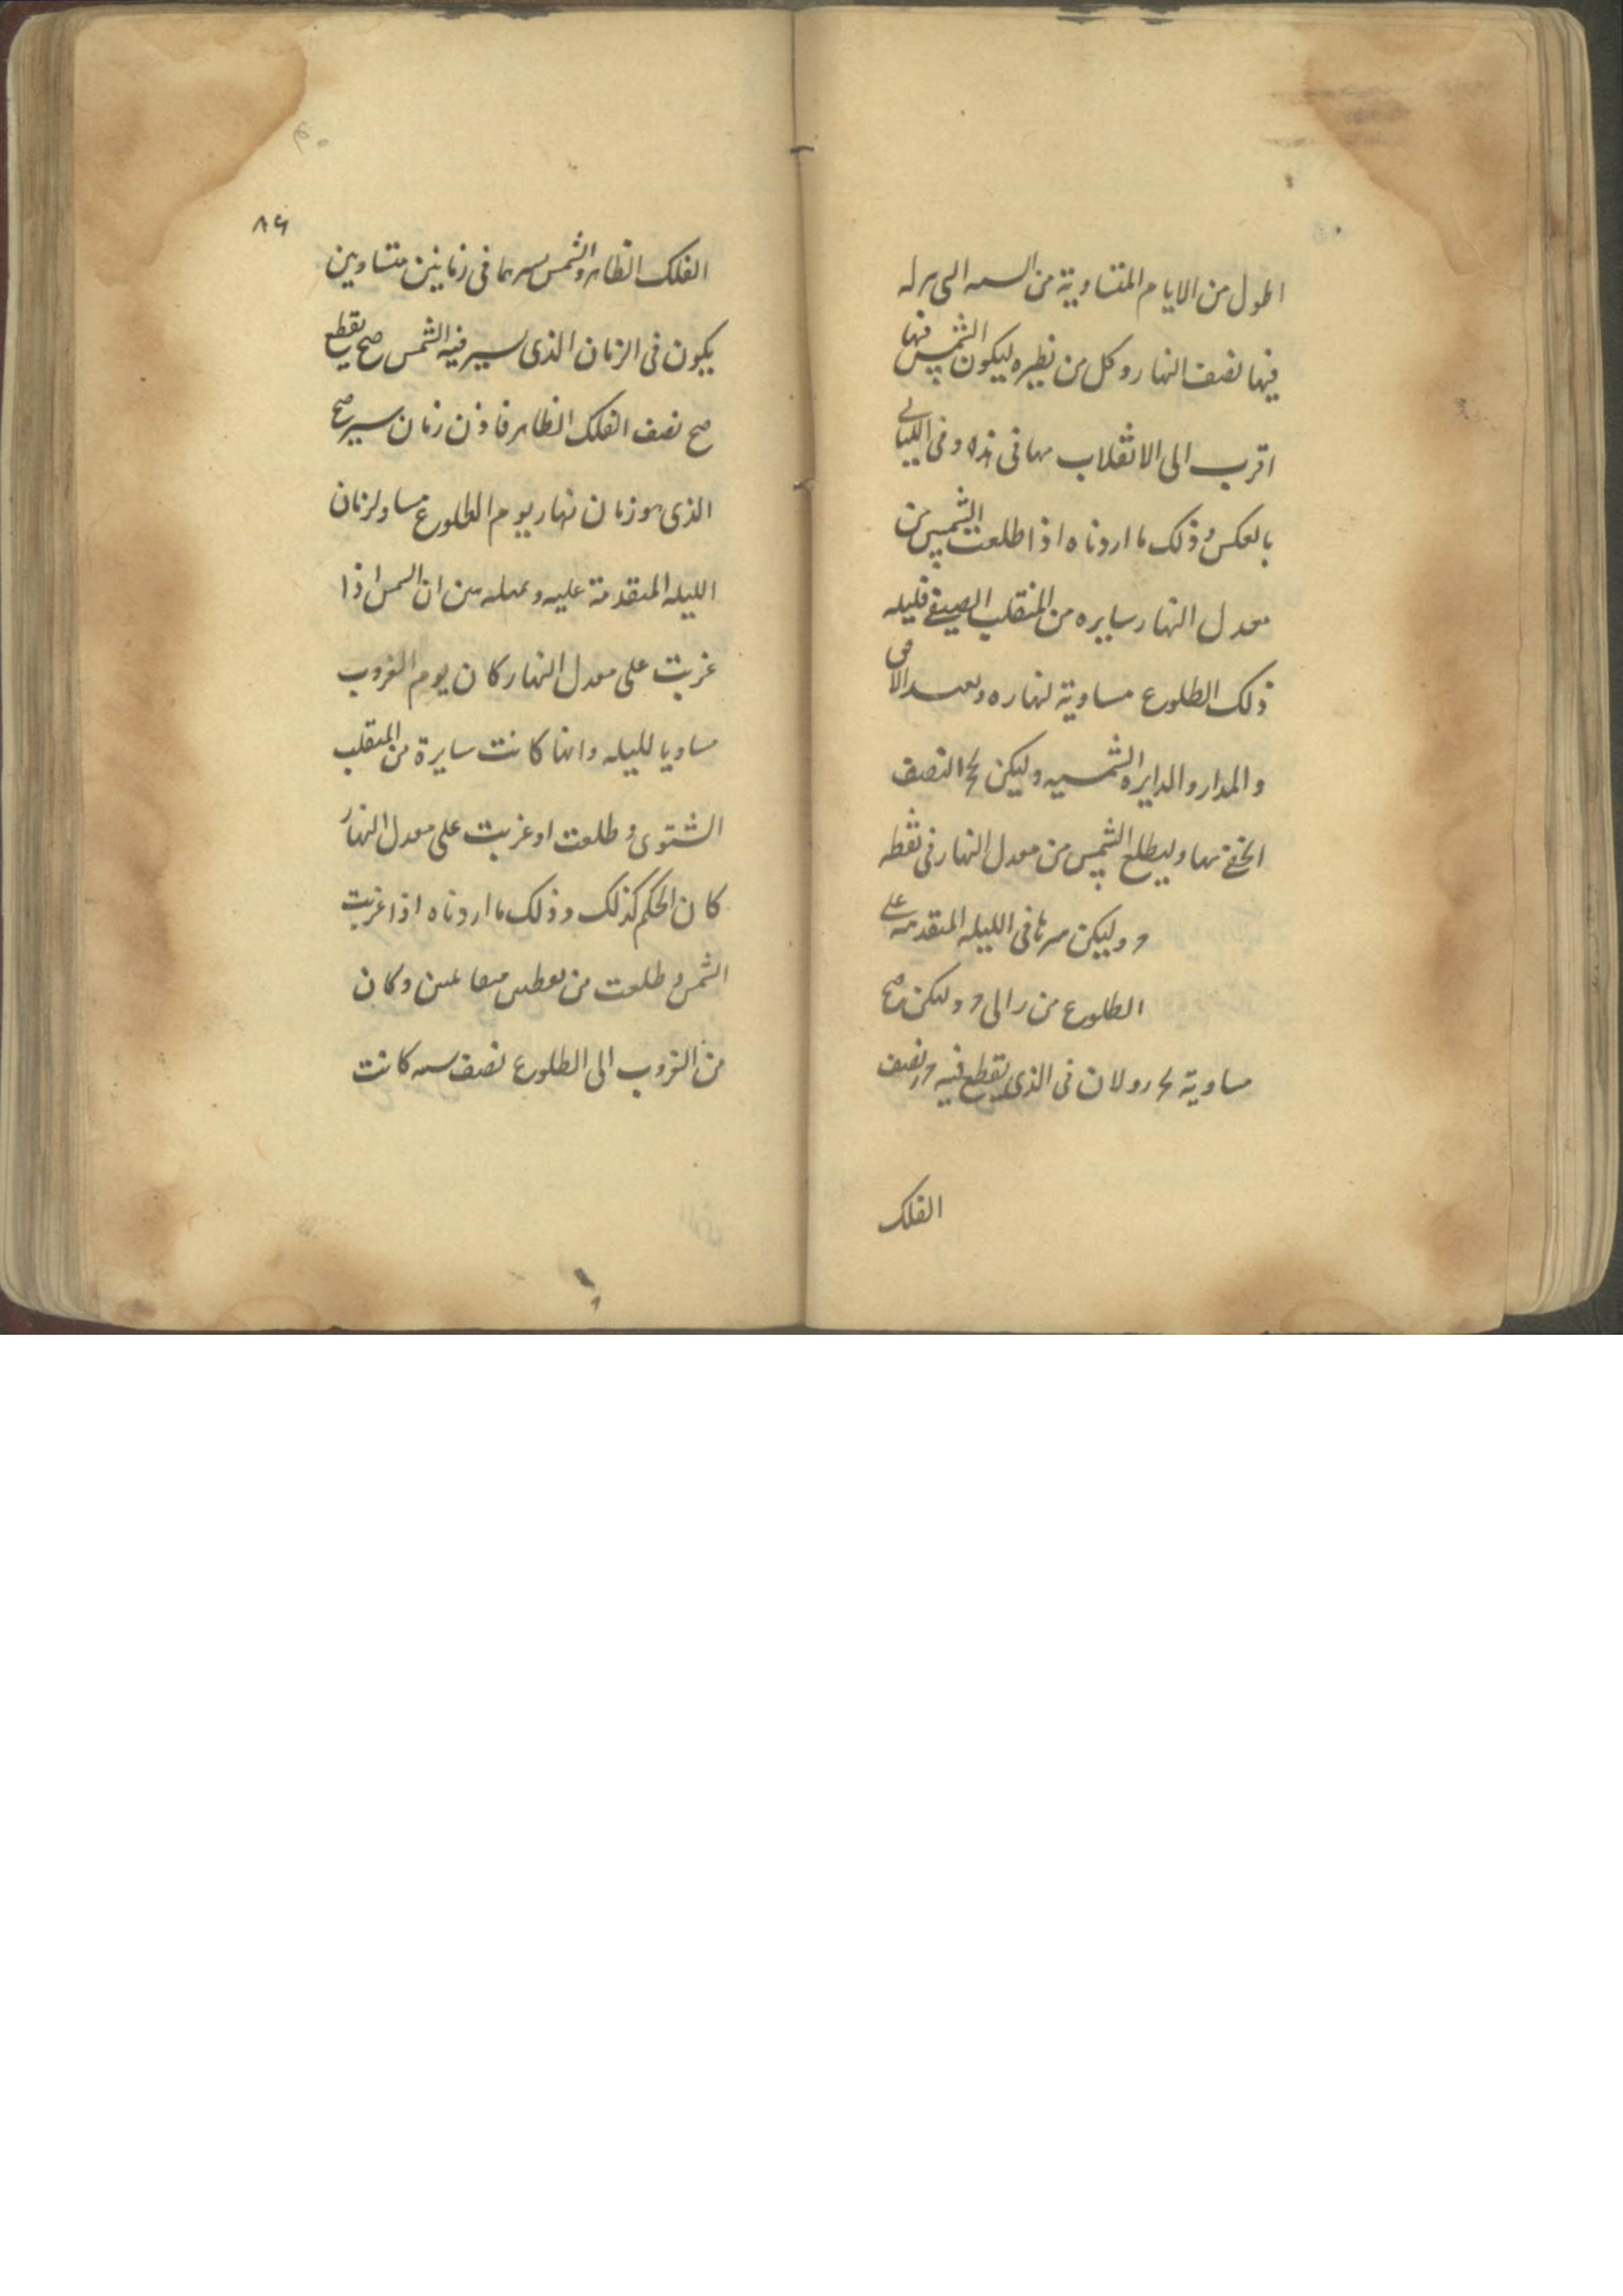 اطول من الايام المتساوية من السـه التى
فيها نصف النهار وكل من نظيره ليكون الشمس فيها
اقرب الى الانقلاب مها فى هذه وفى الليالى
بالعكس وذلك ما اردناه اذا طلعت الشمس من
معدل النهار سايره من المنقلب الصيفى فليله
ذلك الطلوع مساوية لنهاره
والمدار والدايره الشمسيه وليكن النصف
الخفى نها وليطلع الشمس من معدل النهار فى نقطه
د وليكن سيرها فى الليله المتقدمه على
الطلوع من ر الى د وليكن صح
مساوية ولان فى الذى يقطع فيه نصف
الفلك
٨٦
الفلك الظاهر والشمس سيرهما فى زمانين متساوين
يكون فى الزمان الذى يسير فيه الشمس صح يقطع
صح نصف الفلك الظاهر فاذن زمان سير صح
الذى هو زمان نهار يوم الطلوع مساو لزمان
الليله المتقدمة عليه وبمثله سن ان الشمس اذا
غربت على معدل النهار كان يوم الغروب
مساويا لليله وانها كانت سايرة من المنقلب
الشتوى وطلعت او غربت على معدل النهار
كان الحكم كذلك وذلك ما اردناه اذا غربت
الشمس وطلعت من نقطتين متقابلتين وكان
من الغروب الى الطلوع نصف سنه كانت